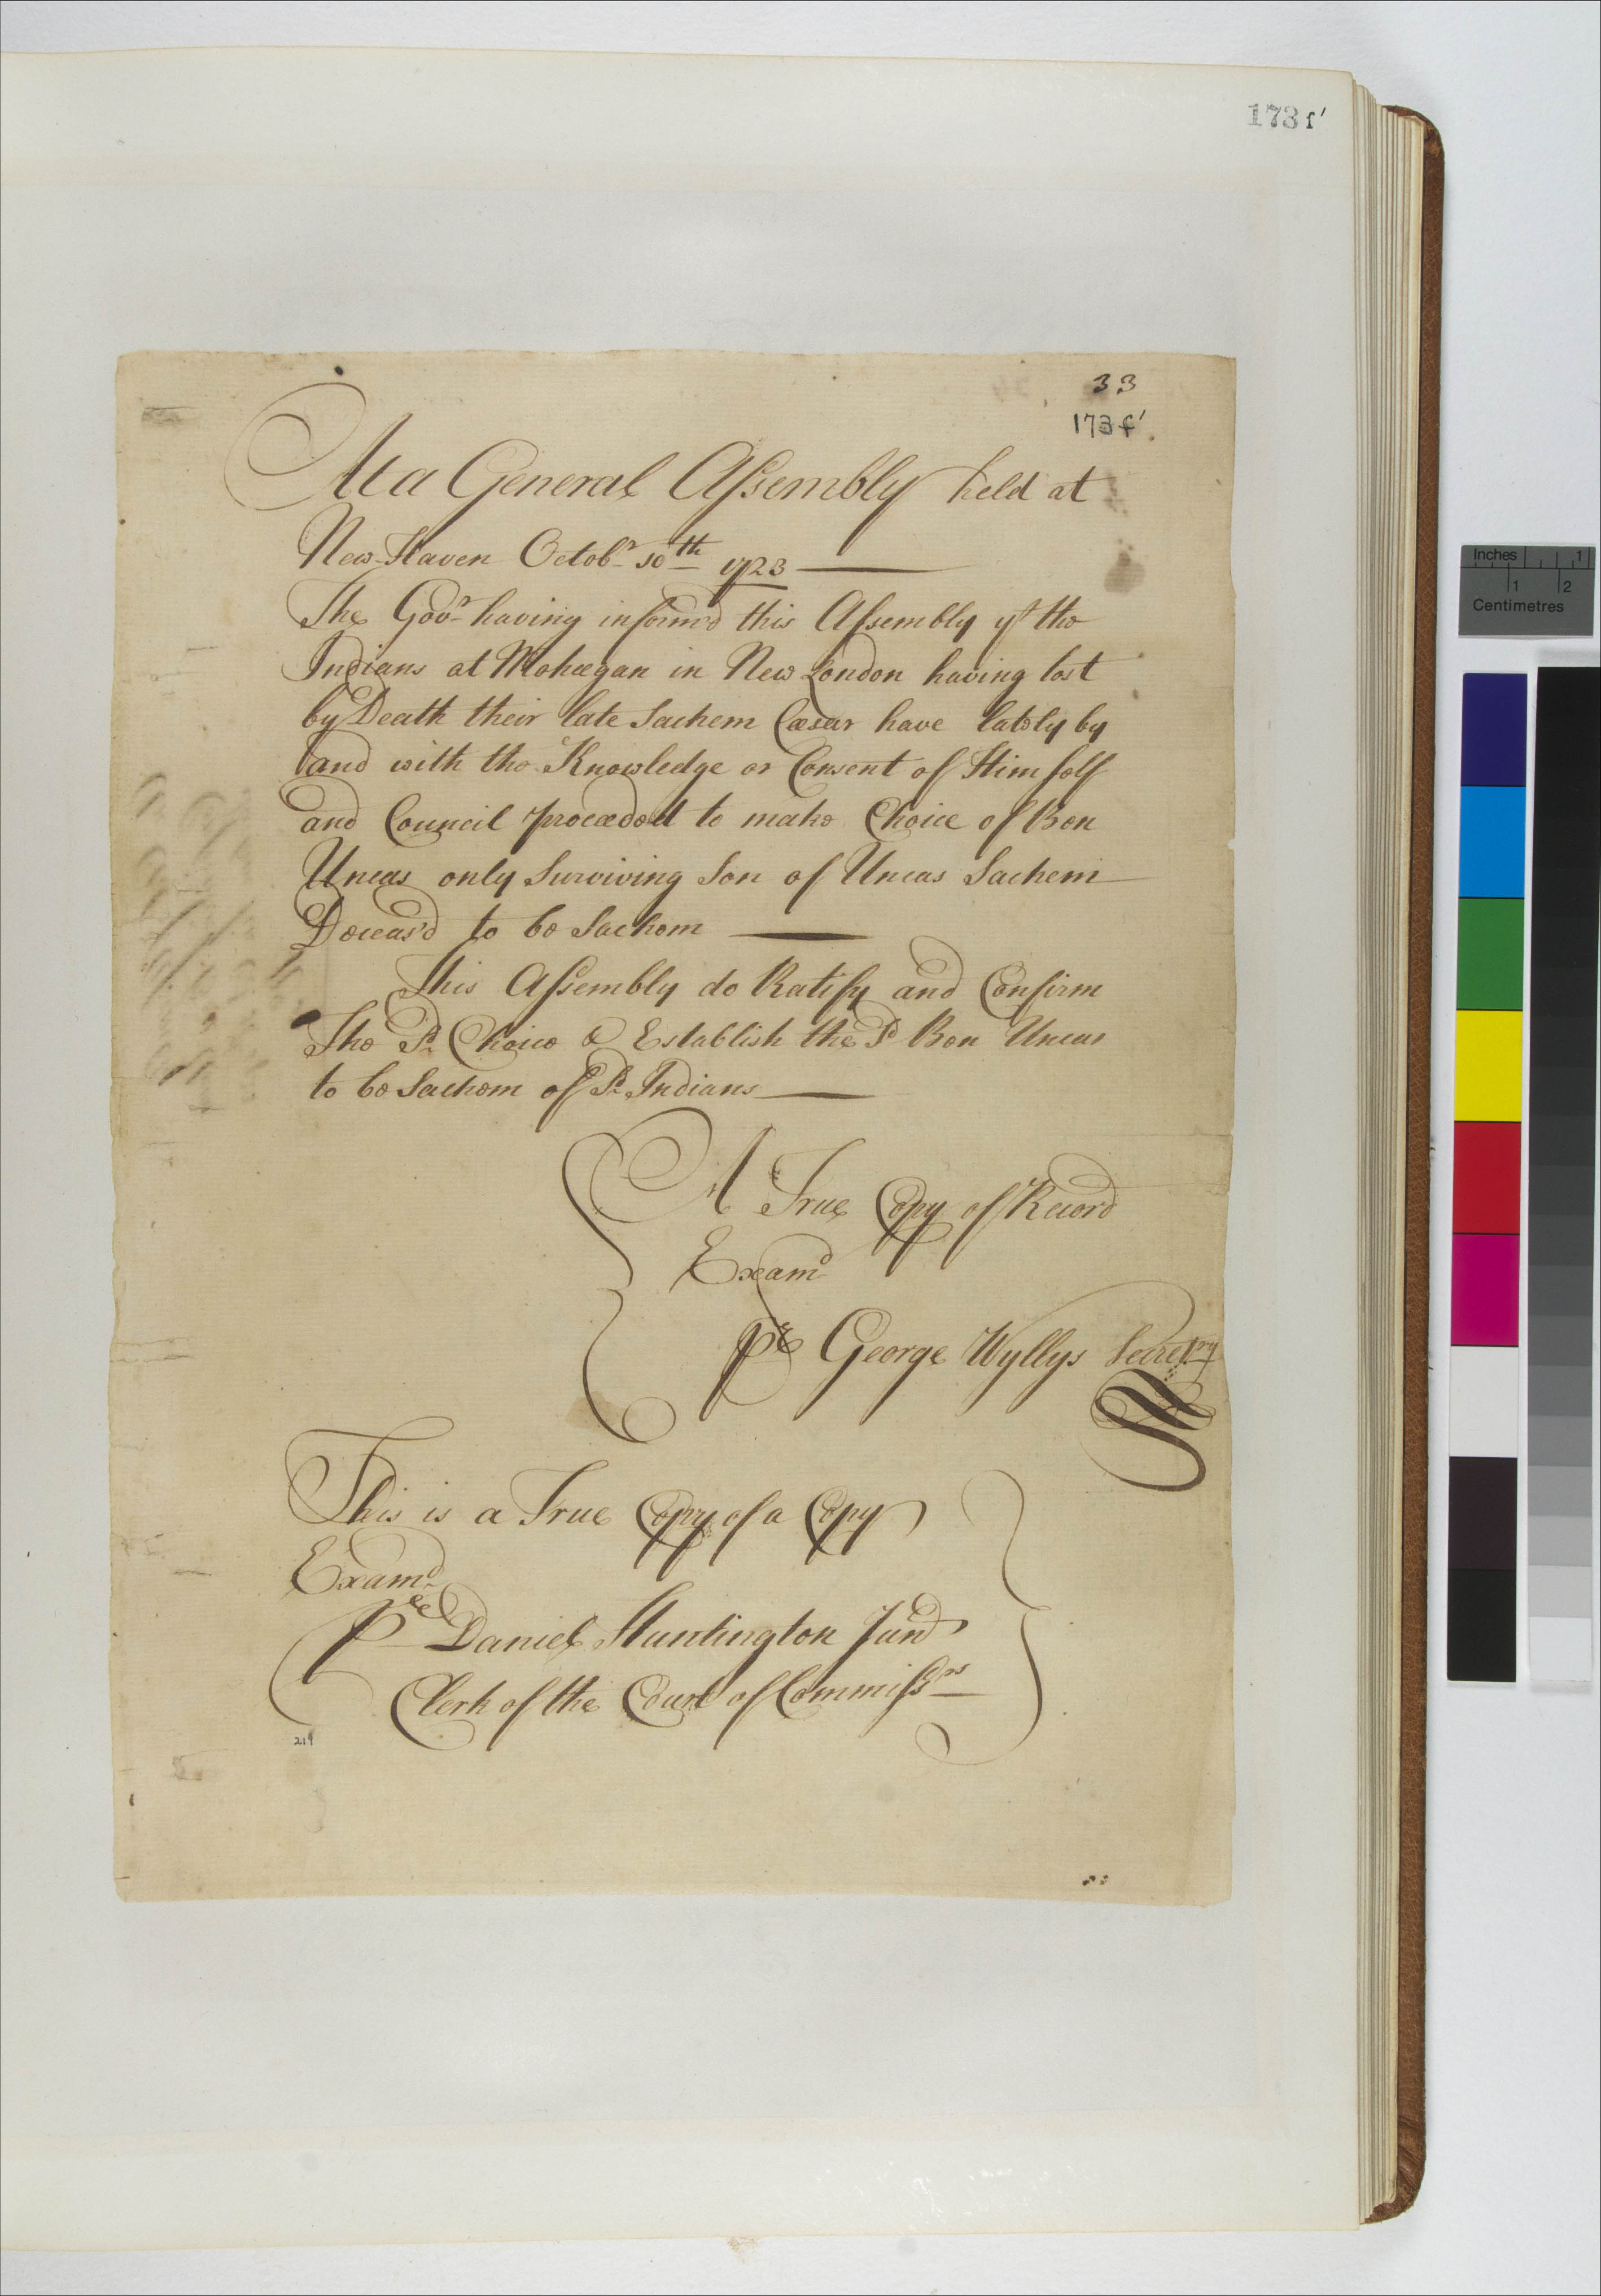 173f'
33
173f'
At a General Assembly held at
New-Haven Octobr 10th 1723
The Govr having inform'd this Assembly yt the
Indians at Mohegan in New London having lost
by Death their late Sachem Cæsar have lately by
and with the Knowledge or Consent of Himself
and Council proceeded to make Choice of Ben
Uncas only Surviving Son of Uncas Sachem
Deceas'd to be Sachem
This Assembly do Ratify and Confirm
The Sd Choice & Establish the Sd Ben Uncas
to be Sachem of Sd Indians
A True Copy of Record
Examd
Pr George Wyllys Secretry
This is a True Copy of a Copy
Examd
Pr Daniel Huntington Junr
Clerk of the Court of Commissrs
219
Inches 1
1 2
Centimetres